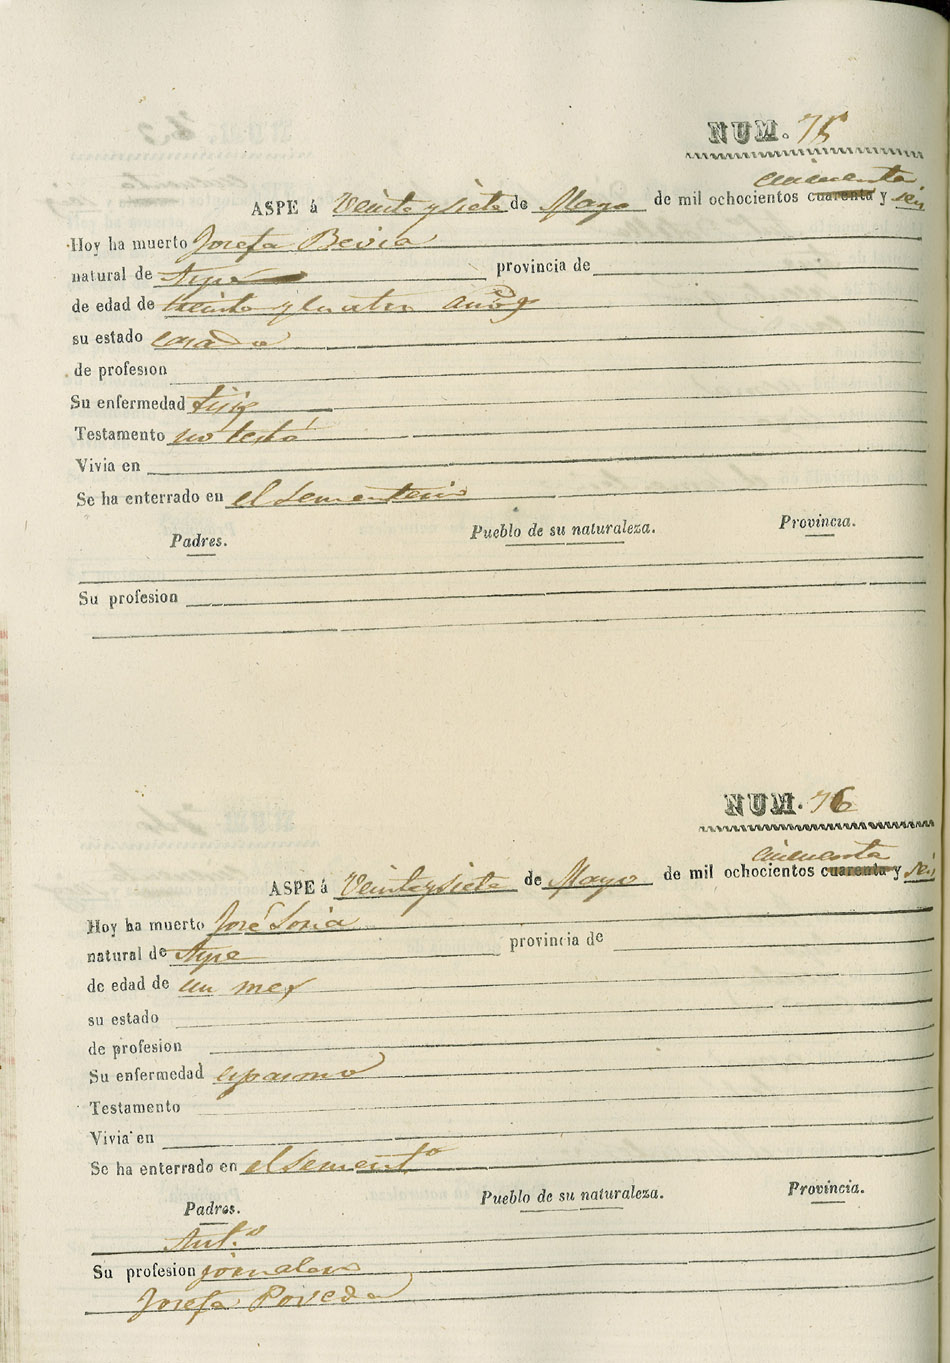 NUM. 75
cincuenta
ASPE á Veinte y siete de Mayo de mil ochocientos cuarenta y seis
Hoy ha muerto Josefa Bevia
natural de Aspe provincia de
de edad de treinta y cuatro años
su estado casada
de profesion
Su enfermedad tisis
Testamento no testó
Vivia en
Se ha enterrado en el sementerio
Padres. Pueblo de su naturaleza. Provincia.
Su profesion
NUM. 76
cincuenta
ASPE á Veinte y siete de Mayo de mil ochocientos cuarenta y seis
Hoy ha muerto José Soria
natural de Aspe provincia de
de edad de un mes
su estado
de profesion
Su enfermedad espasmo
Testamento
Vivia en
Se ha enterrado en el sementº
Padres. Pueblo de su naturaleza. Provincia.
Ant.º
Su profesion jornalero
Josefa Poveda